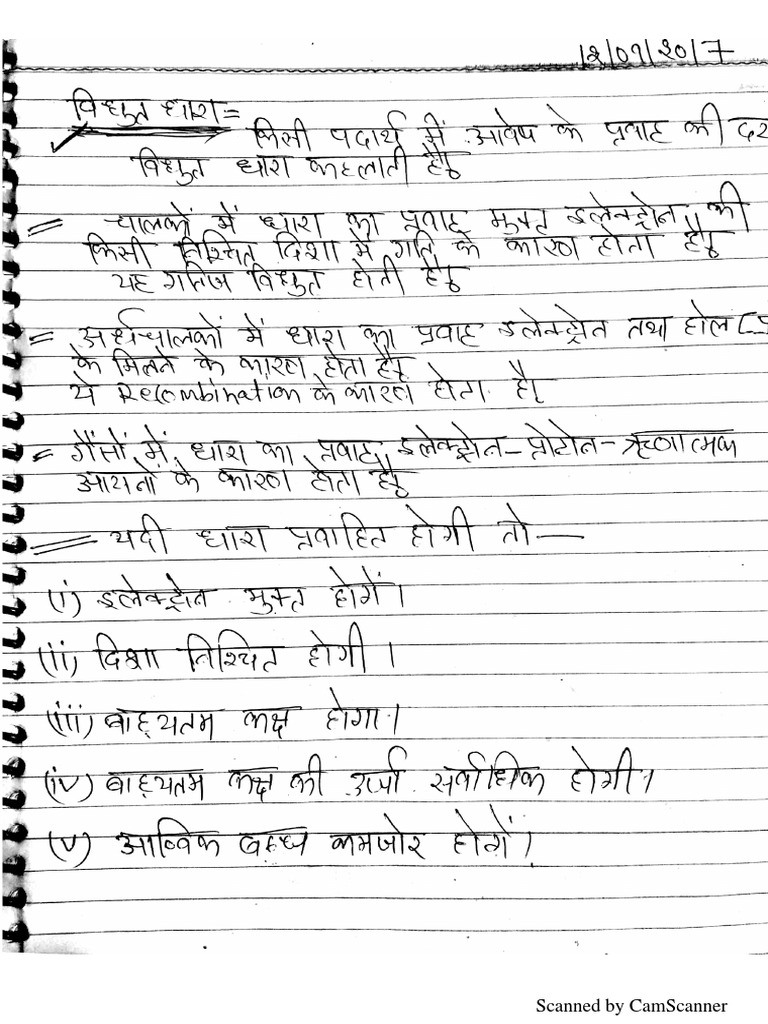 12/07/2017
विधुत धारा=
किसी पदार्थ में आवेष के प्रवाह की दर
विधुत धारा कहलाती है।
= चालकों में धारा का प्रवाह मुक्त इलेक्ट्रोन की
किसी निश्चित दिशा में गति के कारण होता है।
यह गतिज विधुत होती है।
= अर्धचालकों में धारा का प्रवाह इलेक्ट्रोन तथा होल (
के मिलने के कारण होता है।
ये Recombination के कारण होता है।
= गैंसों में धारा का प्रवाह इलेक्ट्रोन-प्रोटोन-ऋणात्मक
आयनों के कारण होता है।
= यदी धारा प्रवाहित होगी तो—
(i) इलेक्ट्रोन मुक्त होगें।
(ii) दिशा निश्चित होगी।
(iii) बाह्यतम कक्ष होगा।
(iv) बाह्यतम कक्ष की उर्जा सर्वाधिक होगी।
(v) आण्विक बन्ध कमजोर होगें।
Scanned by CamScanner